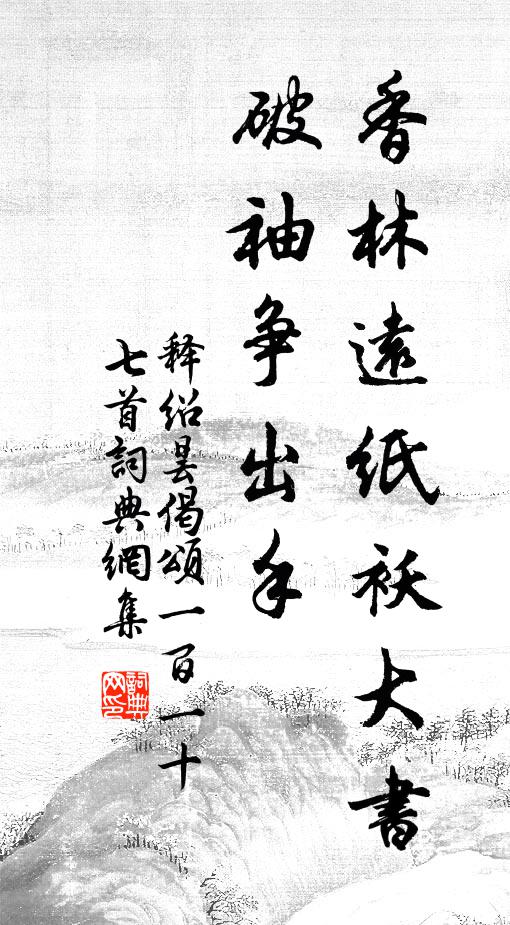 香林遠紙袄大書
破袖争出手
释绍昙偈頌一百一十
七首詞典網集
詞典網印